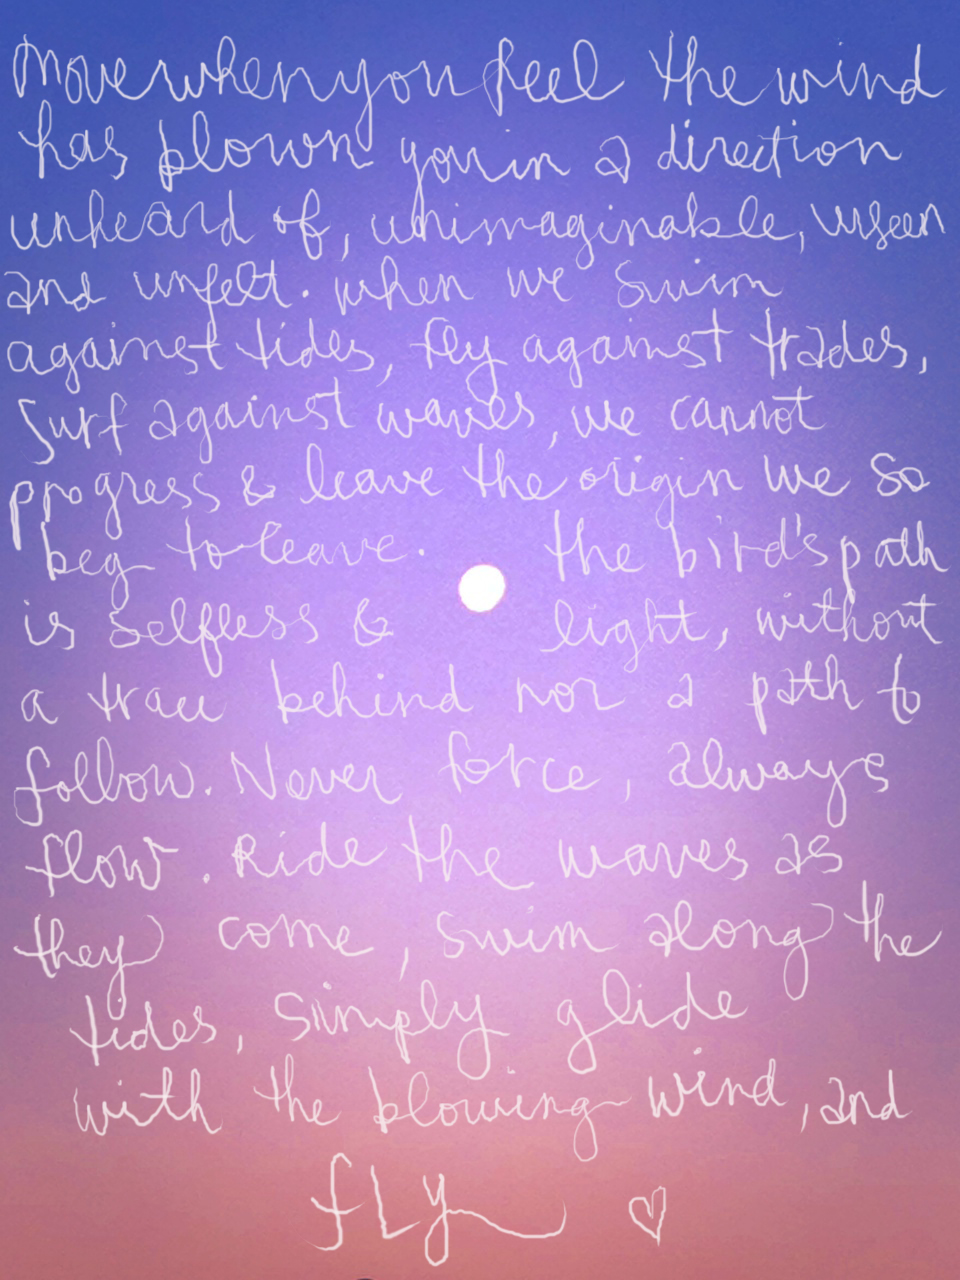 Move when you feel the wind
has blown you in a direction
unheard of, unimaginable, unseen
and unfelt. when we swim
against tides, fly against trades,
surf against waves, we cannot
progress & leave the origin we so
beg to leave. the bird's path
is selfless & light, without
a trace behind nor a path to
follow. Never force, always
flow. Ride the waves as
they come, swim along the
tides, simply glide
with the blowing wind, and
fLy ♡